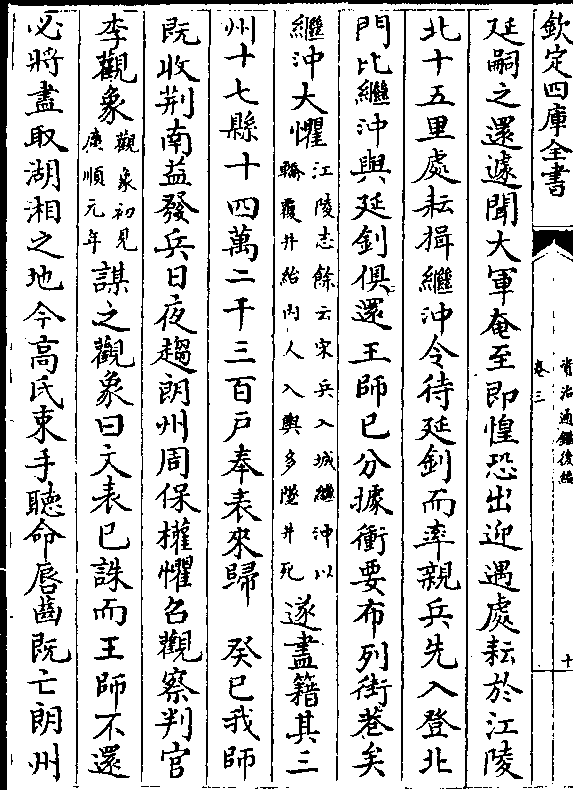 欽定四庫全書
資治通鑑後編
卷三
十
延嗣之還遽聞大軍奄至即惶恐出迎遇處耘於江陵
北十五里處耘揖繼沖令待延釗而率親兵先入登北
門比繼沖與延釗俱還王師已分據衝要布列街巷矣
繼沖大懼江陵志餘云宋兵入城繼沖以轎覆井紿內人入輿多墜井死遂盡籍其三
州十七縣十四萬二千三百戶奉表來歸 癸巳我師
既收荆南益發兵日夜趨朗州周保權懼召觀察判官
李觀象觀象初見廣順元年謀之觀象曰文表已誅而王師不還
必將盡取湖湘之地今高氏束手聽命唇齒既亡朗州